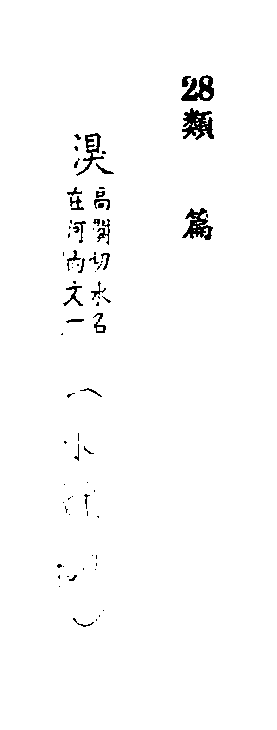 28 類篇
湨
高闃切水名
在河內文一